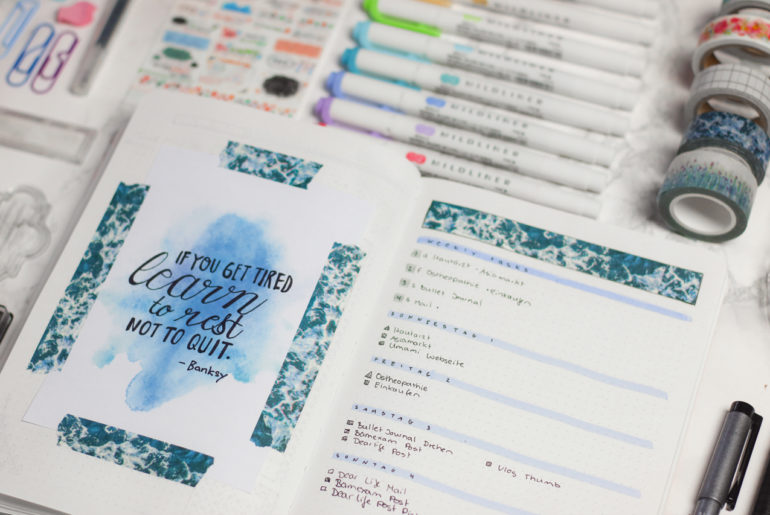 MILDLINER
MILDLINER
MILDLINER
MILDLINER
MILDLINER
IF YOU GET TIRED
learn
to rest
NOT TO QUIT.
-Banksy
WEEKLY TASKS
Hautarzt · Asiamarkt
Ostheopathie · Einkaufen
Bullet Journal
Mail
DONNERSTAG 1
Hautarzt
Asiamarkt
Umami Webseite
FREITAG 2
Ostheopathie
Einkaufen
SAMSTAG 3
Bullet Journal Drehen
Bamexam Post
Post
Vlog Thumb
SONNTAG 4
Dear Life Mail
Bamexam Post
Dear Life Post